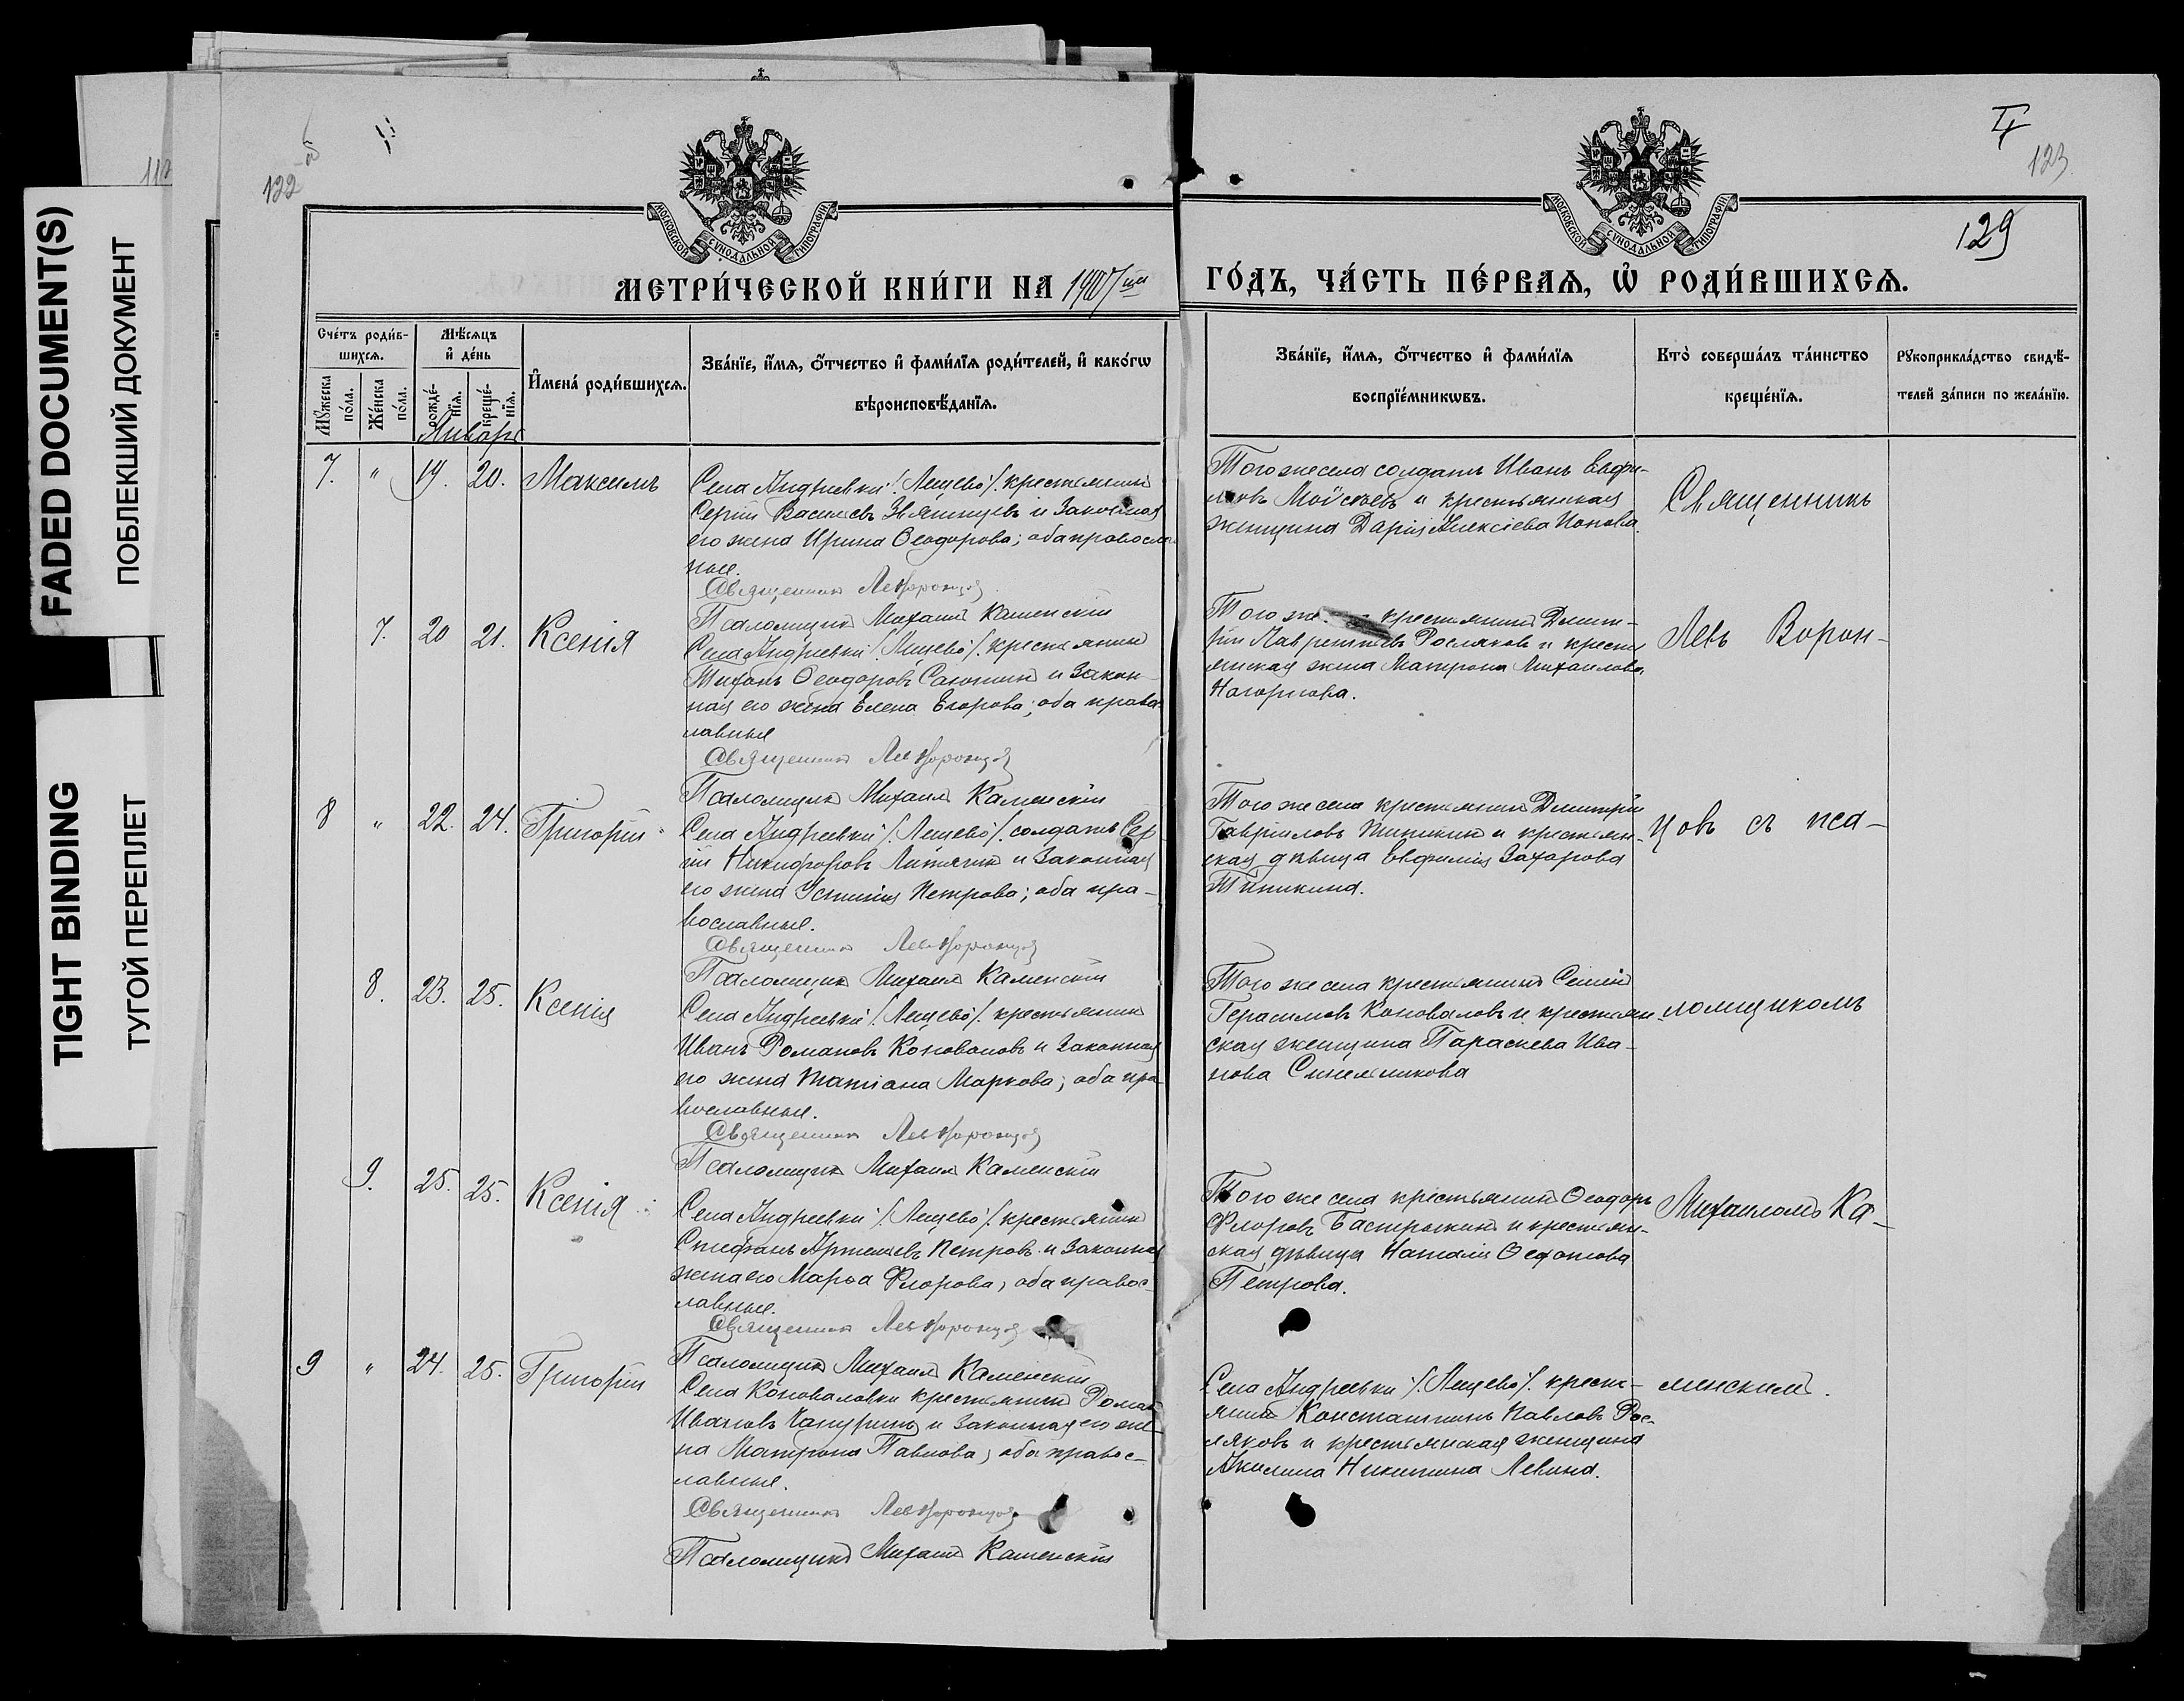 FADED DOCUMENT(S)
ПОБЛЕКШИЙ ДОКУМЕНТ
TIGHT BINDING
ТУГОЙ ПЕРЕПЛЕТ
122 об
123
129
МОСКОВСКОЙ СѴНОДАЛЬНОЙ ТИПОГРАФІИ
МОСКОВСКОЙ СѴНОДАЛЬНОЙ ТИПОГРАФІИ
МЕТРИ́ЧЕСКОЙ КНИ́ГИ НА 1907й
ГО́ДЪ, ЧА́СТЬ ПЕ́РВАѦ, Ѡ҆ РОДИ́ВШИХСѦ.
Сче́тъ роди́в-
шихсѧ.
Мꙋ́жеска по́ла.
Же́нска по́ла.
Мѣ́сѧцъ
и҆ де́нь
рожде́-
нїѧ.
креще́-
нїѧ.
И҆мена̀ роди́вшихсѧ.
Зва́нїе, и҆́мѧ, ѻ҆́тчество и҆ фами́лїѧ роди́телей, и҆ како́гѡ
вѣроисповѣ́данїѧ.
Зва́нїе, и҆́мѧ, ѻ҆́тчество и҆ фами́лїѧ
воспрїе́мникѡвъ.
Кто̀ соверша́лъ та́инство
креще́нїѧ.
Рꙋкоприкла́дство свидѣ́-
телей за́писи по жела́нїю.
Январь
7. " 19. 20. Максимъ
Села Андреевки /Лещево/ крестьянинъ
Сергій Васильевъ Звягинцевъ и законная
его жена Ирина Ѳеодорова; оба православ
ные.
Священникъ Левъ Воронцовъ
Псаломщикъ Михаилъ Каменскій
Того же села солдатъ Иванъ Евфи-
мовъ Моисеевъ и крестьянская
женщина Дарія Алексіева Попова.
7. 20 21. Ксенія
Села Андреевки /Лещево/ крестьянинъ
Тихонъ Ѳеодоровъ и закон-
ная его жена Елена Егорова; оба право
лавные
Священникъ Левъ Воронцовъ
Псаломщикъ Михаилъ Каменскій
Того же крестьянинъ Дмит-
рій Лаврентьевъ Росляковъ и кресть
янская жена Матрона Михаилова
8 " 22. 24. Григорій
Села Андреевки /Лещево/ солдатъ Сер
гій Никифоровъ и законная
его жена Устинія Петрова; оба пра-
вославные.
Священникъ Левъ Воронцовъ
Псаломщикъ Михаилъ Каменскій
Того же села крестьянинъ Дмитрій
Гавріиловъ Типикинъ и крестьян-
ская дѣвица Евфимія Захарова
Типикина.
8. 23. 25. Ксенія
Села Андреевки /Лещево/ крестьянинъ
Иванъ Романовъ Коноваловъ и законная
его жена Татіана Маркова; оба пра
вославные.
Священникъ Левъ Воронцовъ
Псаломщикъ Михаилъ Каменскій
Того же села крестьянинъ Семенъ
Герасимовъ Коноваловъ и крестьян-
ская женщина Параскева Ива-
нова Синельникова
9. 25. 25. Ксенія
Села Андреевки /Лещево/ крестьянинъ
Стефанъ Артемьевъ Петровъ и законная
жена его Марья Флорова; оба правос-
лавные.
Священникъ Левъ Воронцовъ
Псаломщикъ Михаилъ Каменскій
Того же села крестьянинъ Ѳеодоръ
Флоровъ Бастрыкинъ и крестьян-
ская дѣвица Наталія
Петрова.
9 " 24. 25. Григорій
Села Коноваловки крестьянинъ Романъ
Ивановъ Чапуринъ и законная его же-
на Матрона Павлова; оба правос-
лавные.
Священникъ Левъ Воронцовъ
Псаломщикъ Михаилъ Каменскій
Села Андреевки /Лещево/ кресть-
янинъ Константинъ Павловъ Рос-
ляковъ и крестьянская женщина
Акилина Никитина Левина.
Священникъ
Левъ Ворон-
цовъ съ пса-
ломщикомъ
Михаиломъ Ка-
менскимъ.